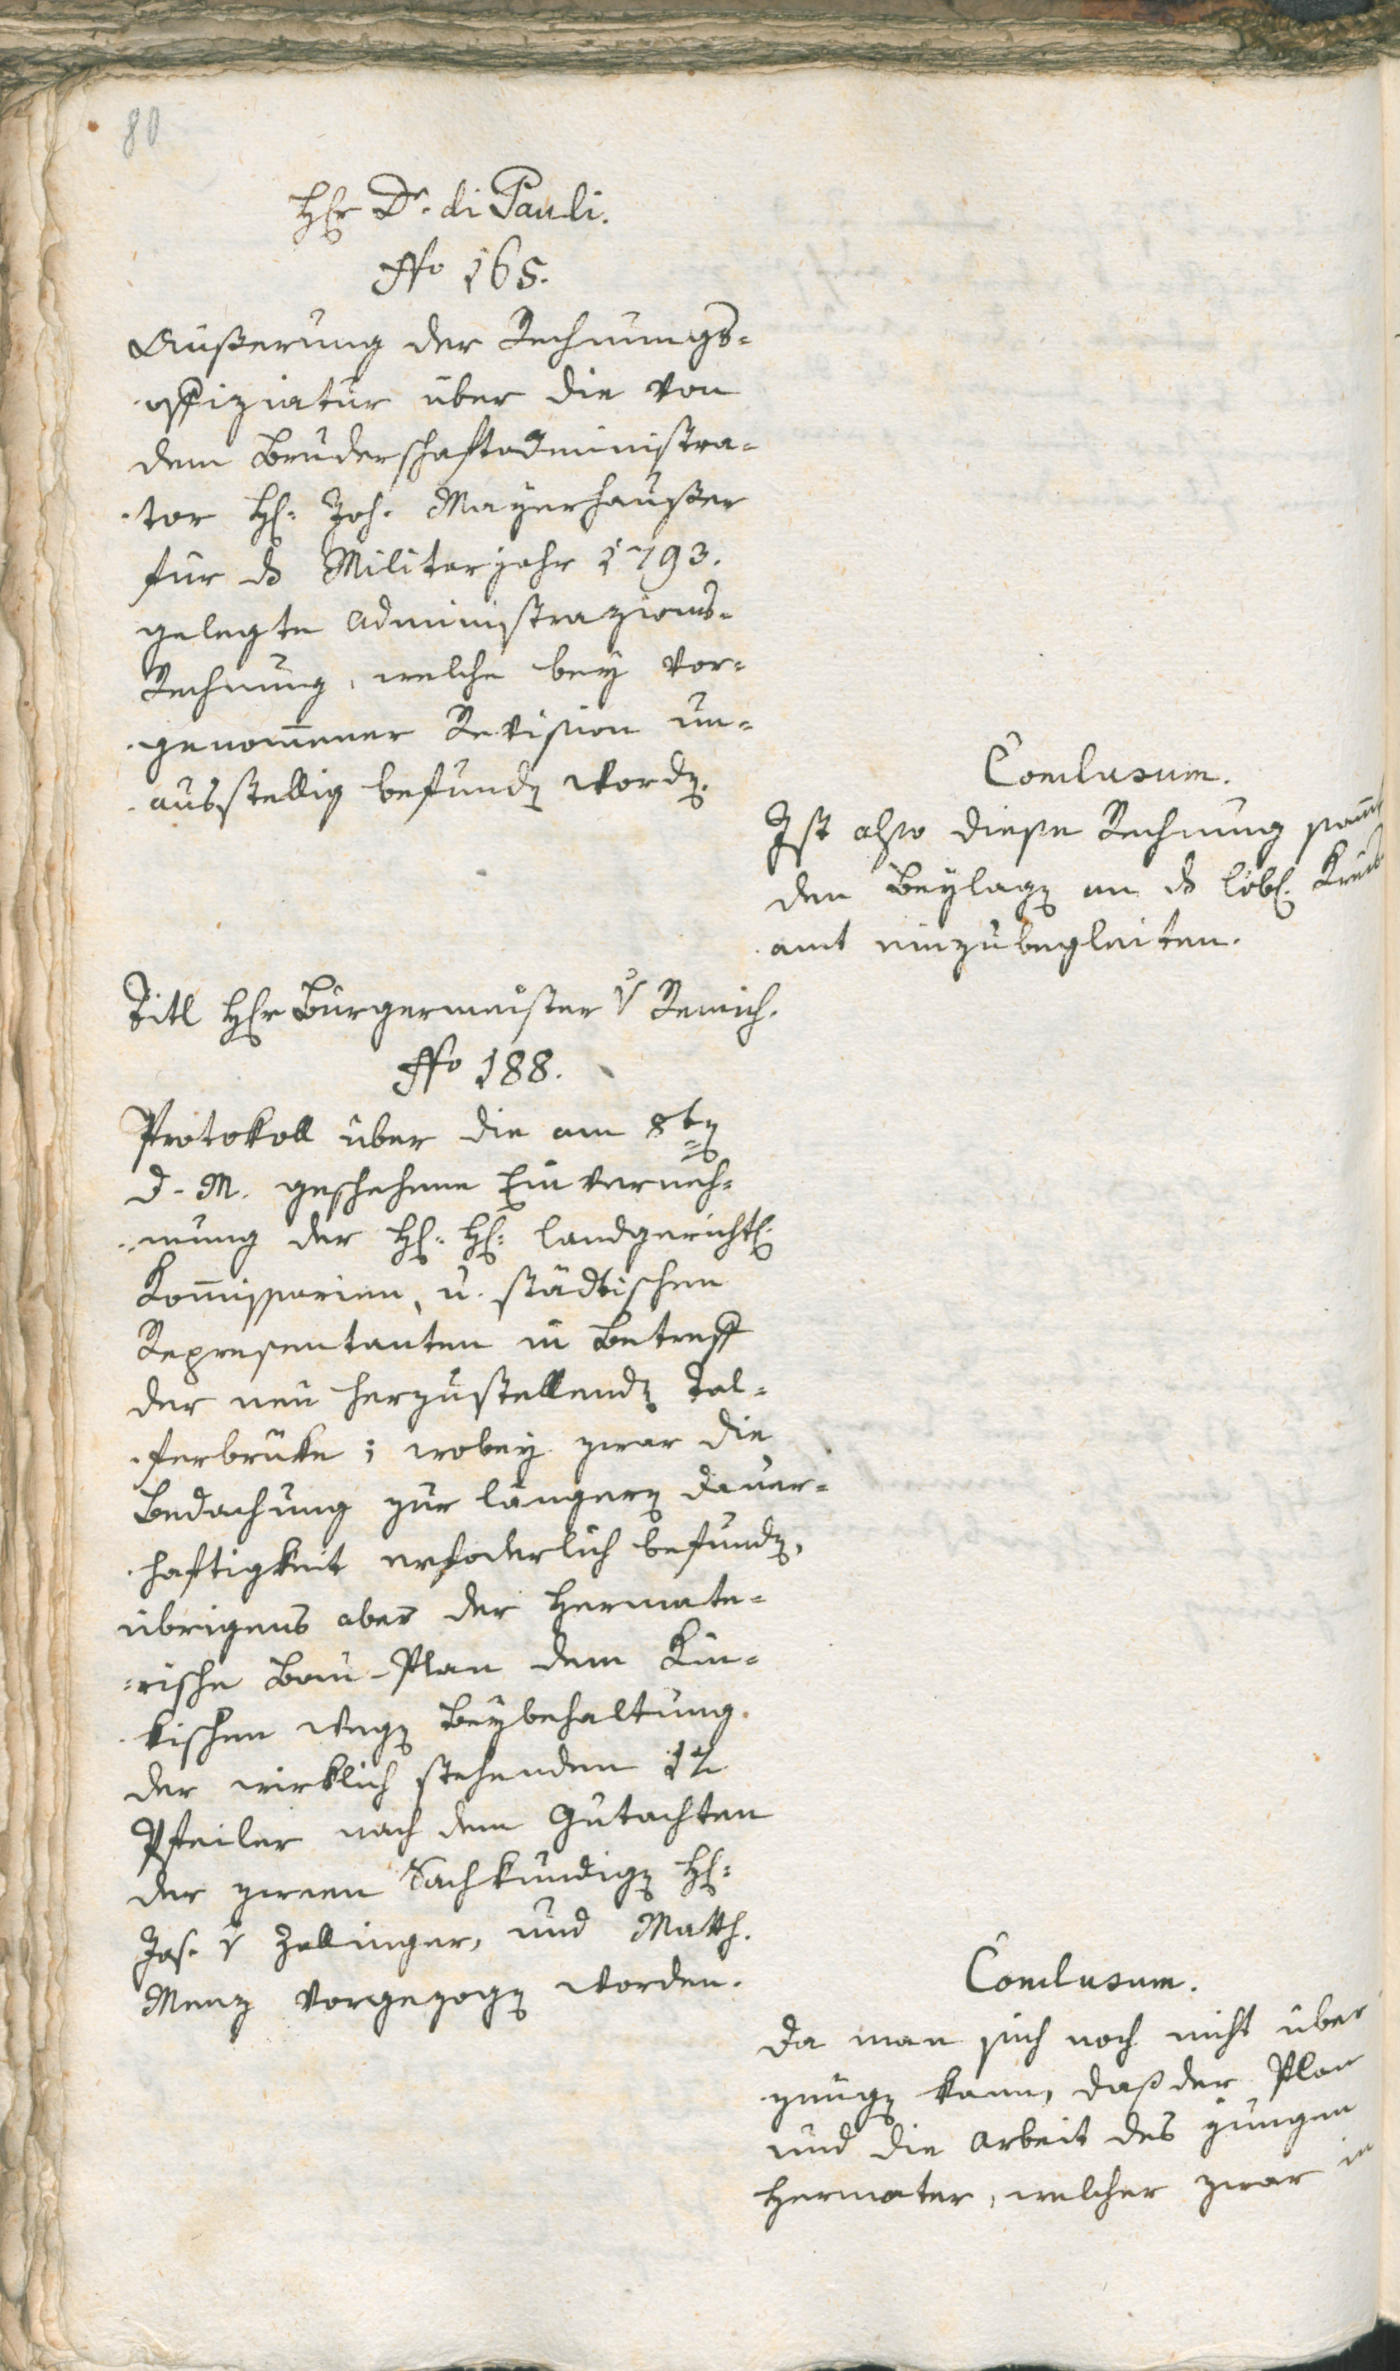 80
Hr Dr. di Pauli.
No 165.
Äußerung der Rechnungs-
offiziatur über die von
dem Bruderschaftadministra-
tor H: Joh. Mayrhauser
für ds Militarjahr 1793.
gelegte Administrazions-
Rechnung, welche bey vor-
genommener Revision un-
ausstellig befunden worden.
Conclusum.
Ist also diese Rechnung samt
den Beylagen an ds löbl. Kreis
amt einzubegleiten.
Titl Hr Bürgermeister v Remich.
No 188.
Protokoll über die am 8ten
d. M. geschehene Einverneh-
mung der H: H: landgerichtl.
Kommissarien, u. städtischen
Representanten in Betreff
der neu herzustellenden Tal-
ferbrüke; wobey zwar die
Bedachung zur längern Dauer-
haftigkeit erfoderlich befunden,
übrigens aber der Hermate-
rische Bau-Plan dem Kin-
kischen wegen Beybehaltung
der wirklich stehenden 12
Pfeiler nach dem Gutachten
der zween Sachkundigen H:
Jos. v Zallinger, und Matth.
Menz vorgezogen worden.
Conclusum.
Da man sich noch nicht über
zeugen kann, daß der Plan
und die Arbeit des jungen
Hermater, welcher zwar in